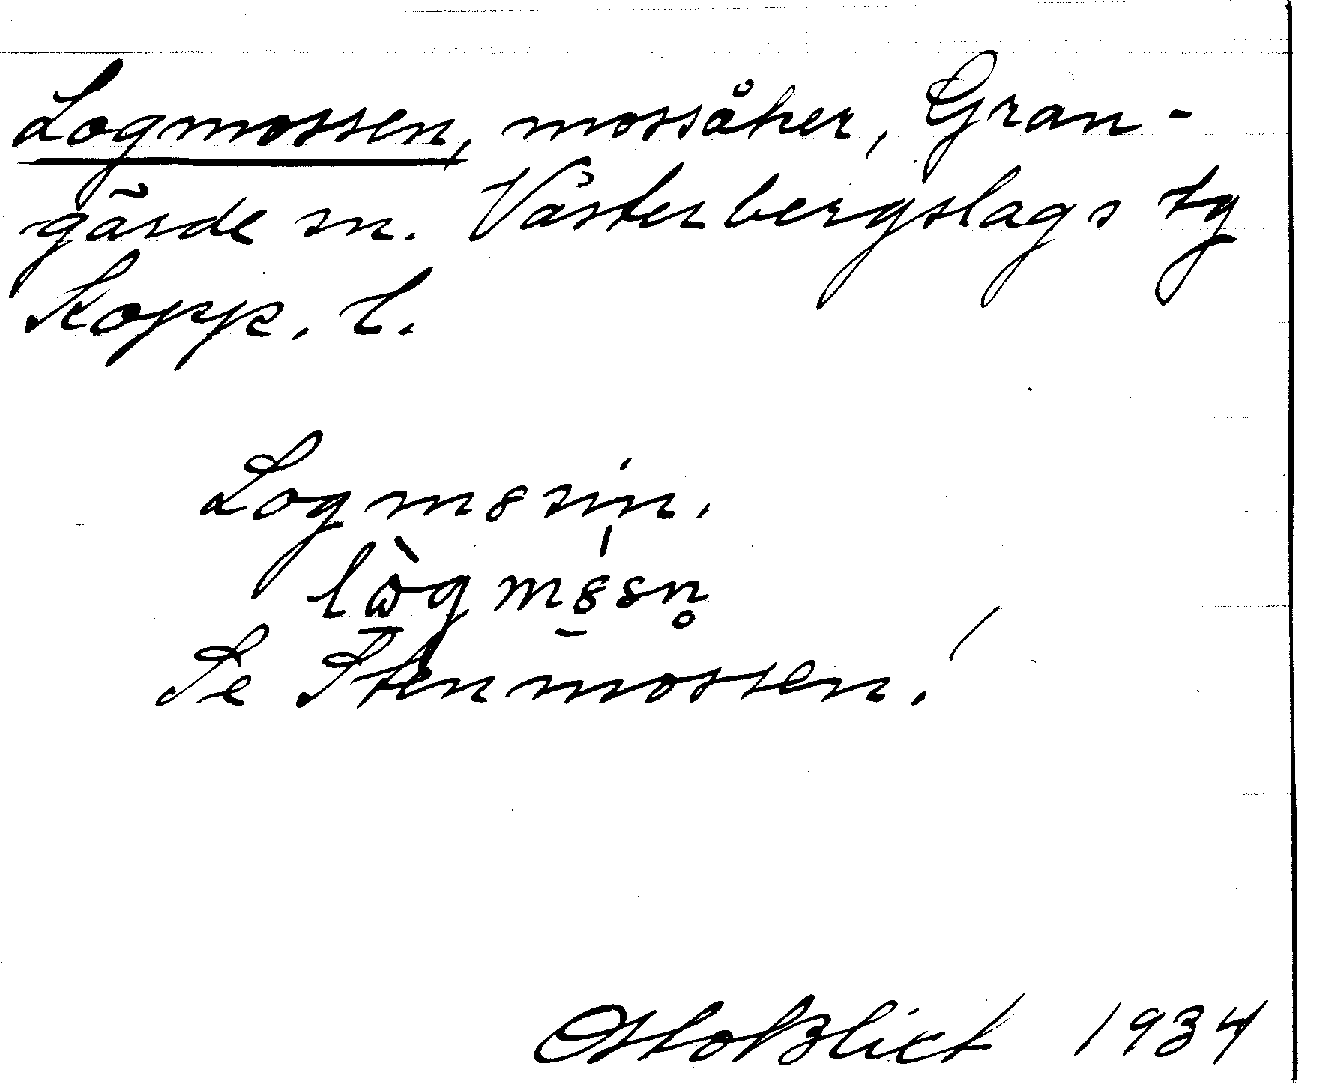 Logmossen, mossåker, Gran-
gärde sn. Västerbergslags tg
Kopp. l.
Logm8sin.
lògm8sn̥
Se Stenmossen!
Otto Blixt 1934